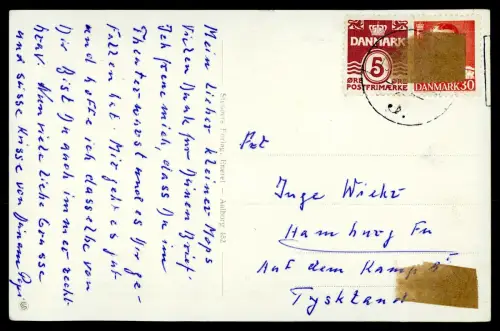 Mein lieber kleiner Mops
Vielen Dank für Deinen Brief.
Ich freue mich, dass Du im
Theater warst und es Dir ge-
fallen hat. Mir geht es gut
und hoffe ich dasselbe von
Dir. Bist Du auch immer recht
brav. Nun viele liebe Grüsse
und süsse Küsse von Deinem Papi
Stenders Forlag, Eneret – Aalborg
DANMARK
5
ØRE ØRE
POSTFRIMÆRKE
DANMARK 30
Frl.
Inge
Hamburg Fu
Auf dem Kamp
Tyskland